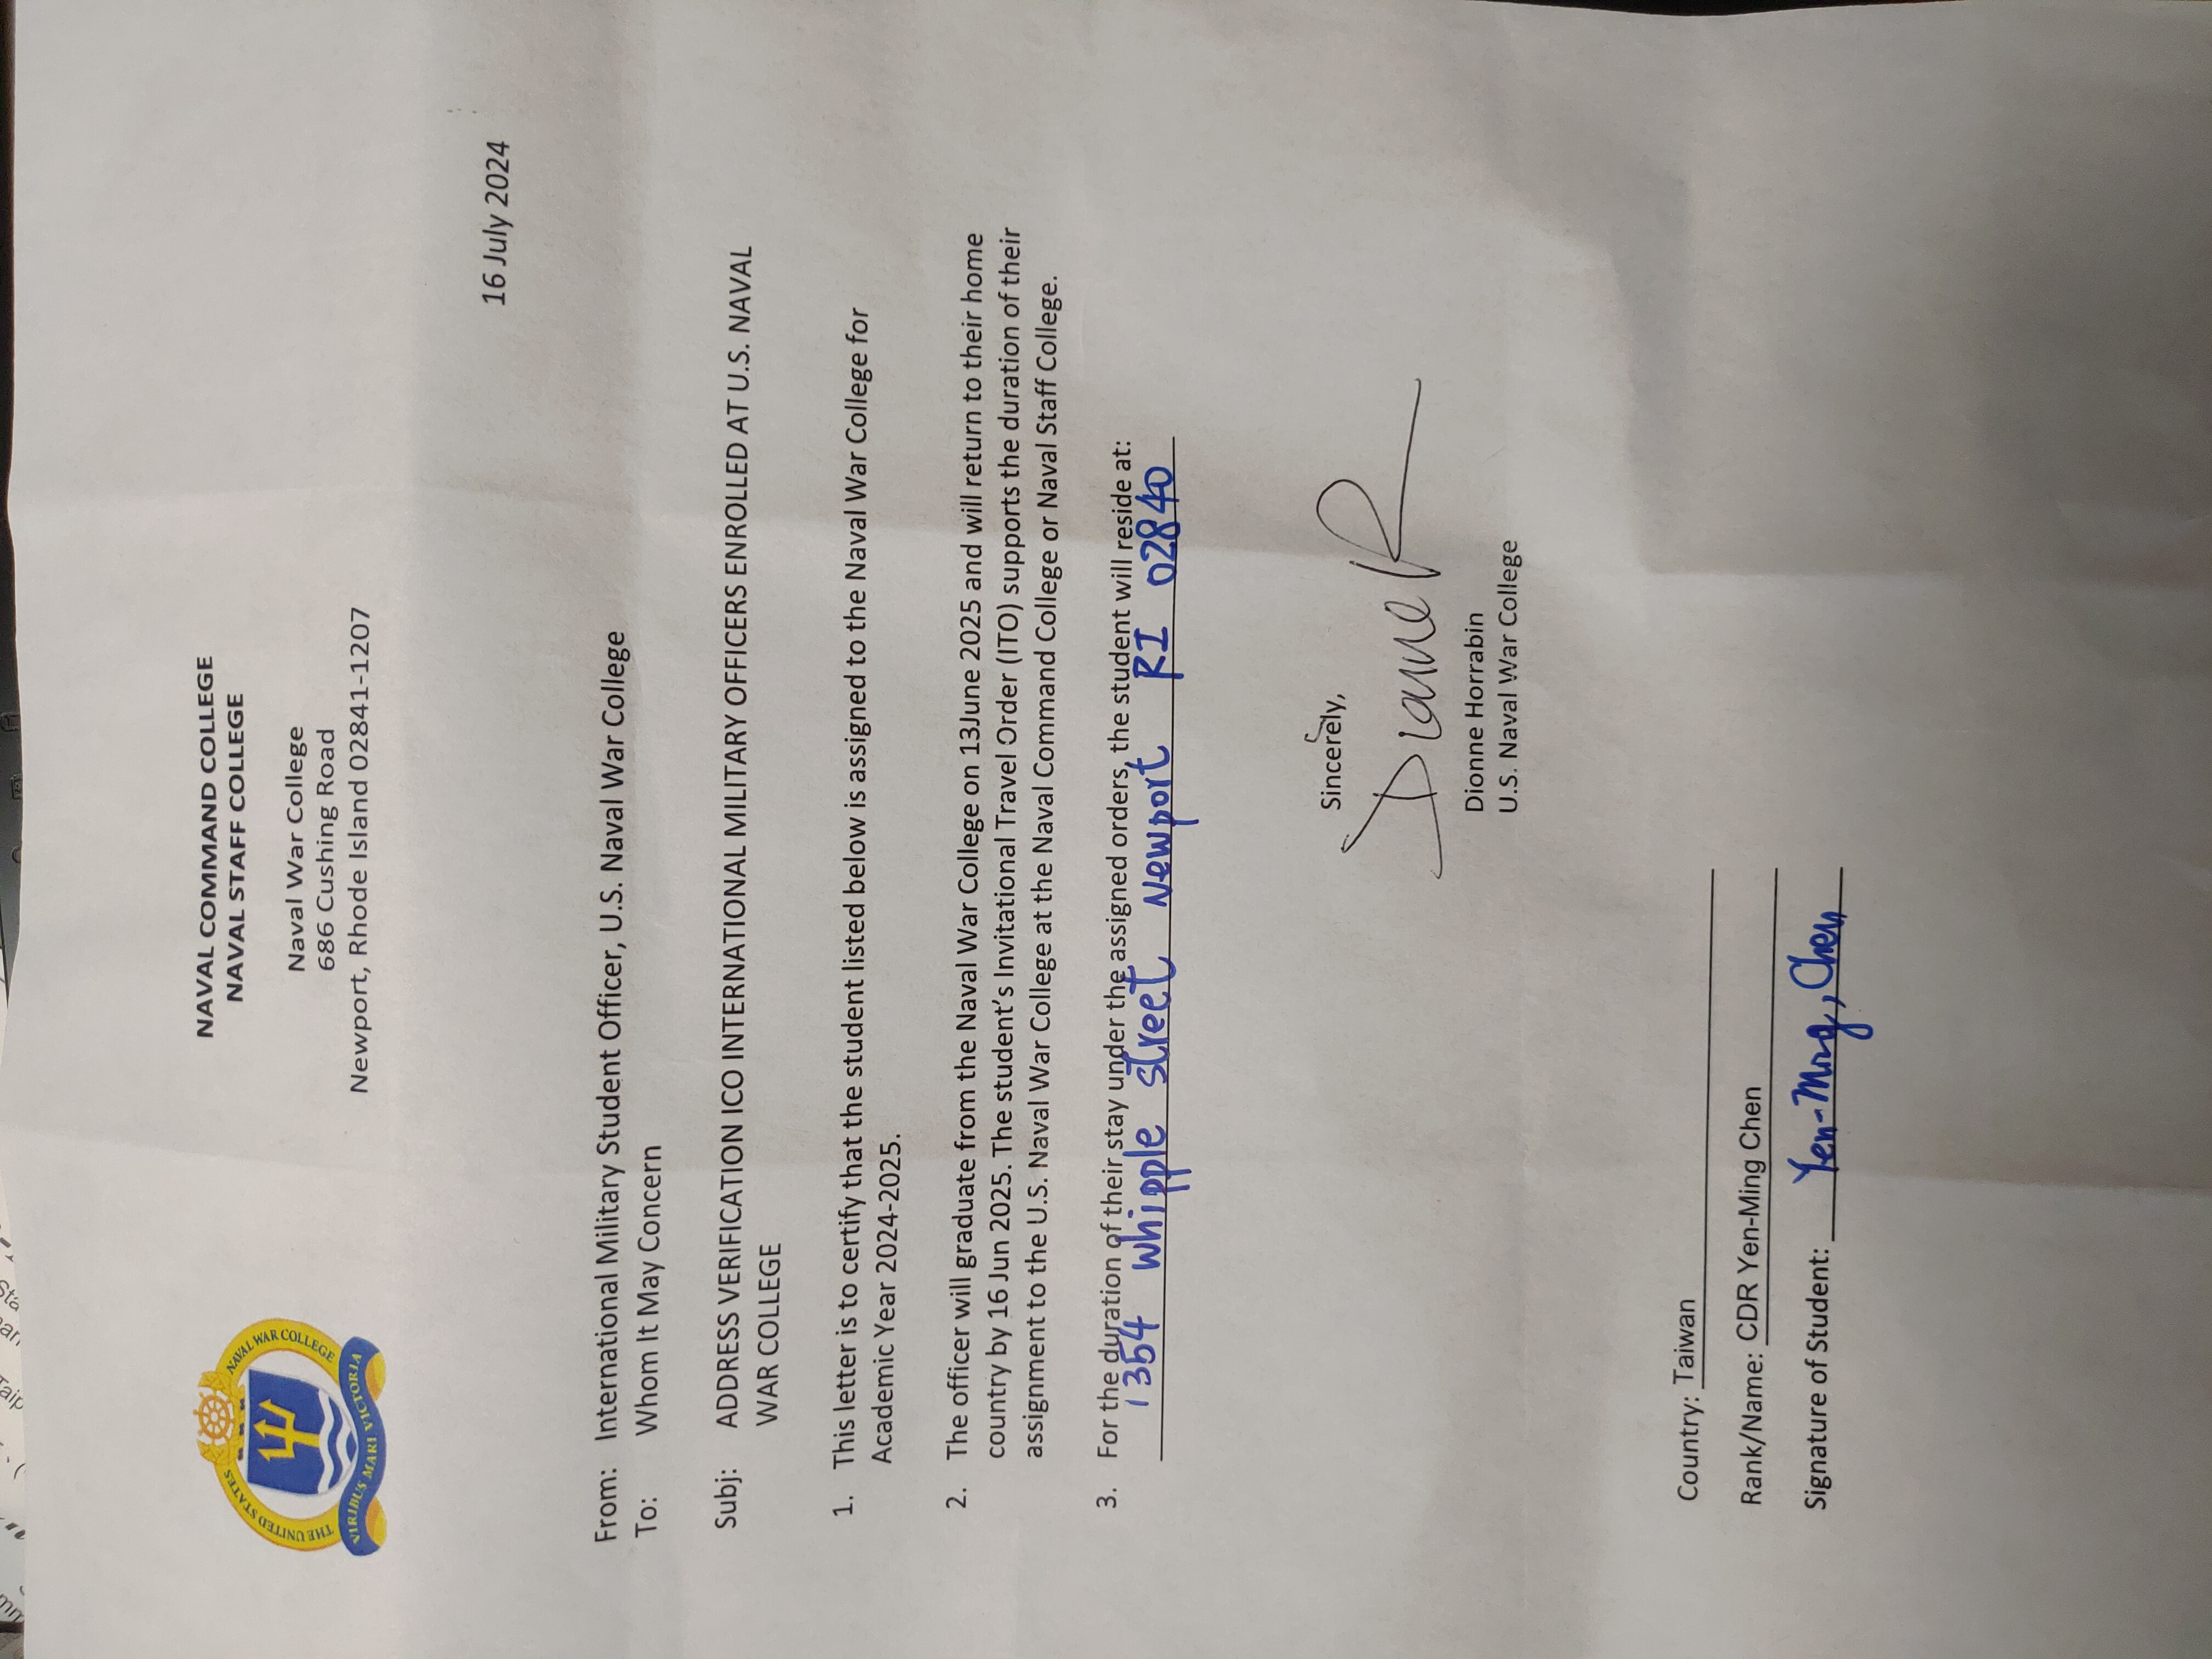 THE UNITED STATES NAVAL WAR COLLEGE
VIRIBUS MARI VICTORIA
NAVAL COMMAND COLLEGE
NAVAL STAFF COLLEGE
Naval War College
686 Cushing Road
Newport, Rhode Island 02841-1207
16 July 2024
From: International Military Student Officer, U.S. Naval War College
To: Whom It May Concern
Subj: ADDRESS VERIFICATION ICO INTERNATIONAL MILITARY OFFICERS ENROLLED AT U.S. NAVAL
WAR COLLEGE
1. This letter is to certify that the student listed below is assigned to the Naval War College for
Academic Year 2024-2025.
2. The officer will graduate from the Naval War College on 13June 2025 and will return to their home
country by 16 Jun 2025. The student's Invitational Travel Order (ITO) supports the duration of their
assignment to the U.S. Naval War College at the Naval Command College or Naval Staff College.
3. For the duration of their stay under the assigned orders, the student will reside at:
1354 whipple street Newport RI 02840
Sincerely,
Dionne R
Dionne Horrabin
U.S. Naval War College
Country: Taiwan
Rank/Name: CDR Yen-Ming Chen
Signature of Student: Yen-Ming, Chen